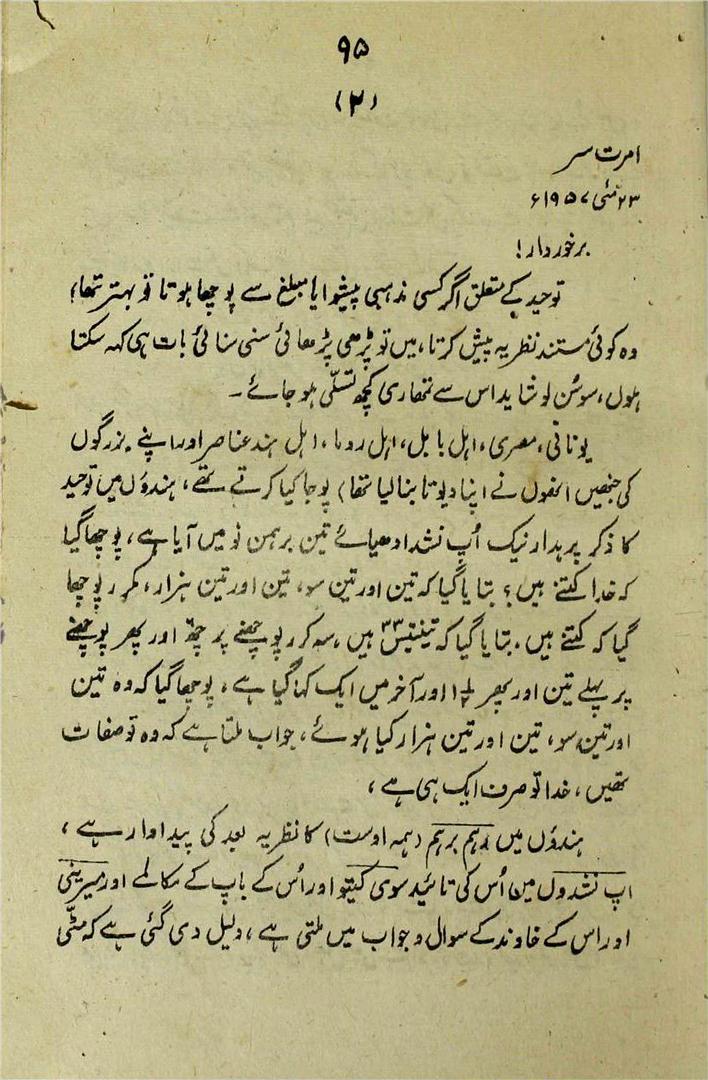 ۹۵
(۲)
امرت سر
۲۳ مئی ۱۹۵۷ء
برخوردار!
توحید کے متعلق اگر کسی مذہبی پیشوا یا مبلغ سے پوچھا ہوتا تو بہتر تھا،
وہ کوئی مستند نظریہ پیش کرتا، میں تو پڑھی پڑھائی سنی سنائی بات ہی کہہ سکتا
ہوں، سو سُن لو شاید اس سے تمھاری کچھ تسلّی ہو جائے۔
یونانی، مصری، اہل بابل، اہل روما، اہل ہند عناصر اور اپنے بزرگوں
کی جنھیں انھوں نے اپنا دیوتا بنا لیا تھا) پوجا کیا کرتے تھے، ہندوؤں میں توحید
کا ذکر برہدارنیک اُپ نشد ادھیائے تین برہمن نو میں آیا ہے، پوچھا گیا
کہ خدا کتنے ہیں؟ بتایا گیا کہ تین اور تین سو، تین اور تین ہزار، مکرر پوچھا
گیا کہ کتنے ہیں۔ بتایا گیا کہ تینتیس ۳۳ ہیں، سہ کرر پوچھنے پر چھ اور پھر پوچھنے
پر پہلے تین اور پھر ۱½ اور آخر میں ایک کہا گیا ہے، پوچھا گیا کہ وہ تین
اور تین سو، تین اور تین ہزار کیا ہوئے، جواب ملتا ہے کہ وہ تو صفات
تھیں، خدا تو صرف ایک ہی ہے،
ہندوؤں میں اہم برہم (ہمہ اوست) کا نظریہ بعد کی پیداوار ہے،
اپ نشدوں میں اُس کی تائید سوی کیتو اور اُس کے باپ کے مکالمے اور میرینی
اور اس کے خاوند کے سوال و جواب میں ملتی ہے، دلیل دی گئی ہے کہ مٹّی